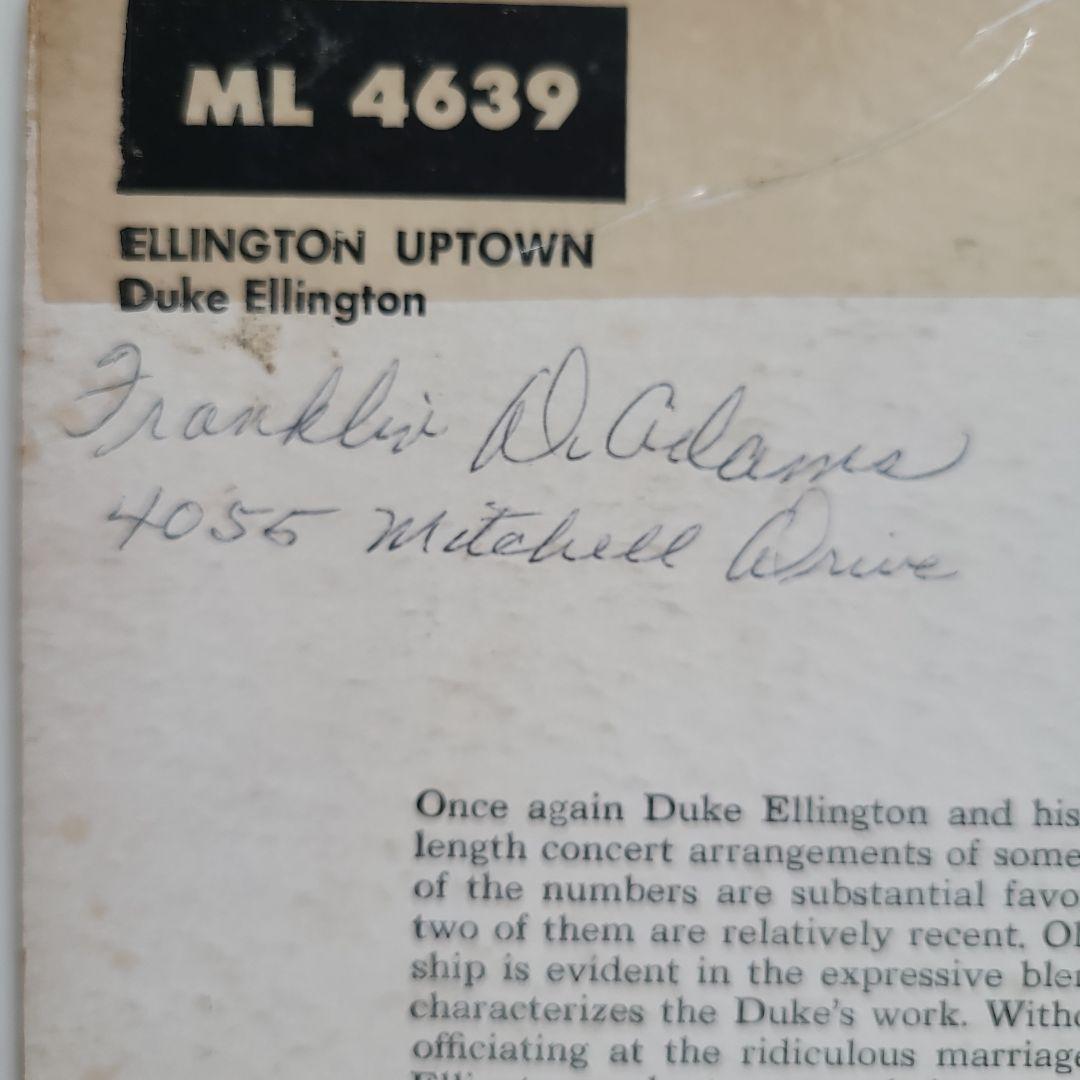 ML 4639
ELLINGTON UPTOWN
Duke Ellington
Franklin D. Adams
4055 Mitchell Drive
Once again Duke Ellington and his
length concert arrangements of some
of the numbers are substantial favo
two of them are relatively recent. Ol
ship is evident in the expressive blen
characterizes the Duke's work. Witho
officiating at the ridiculous marriage